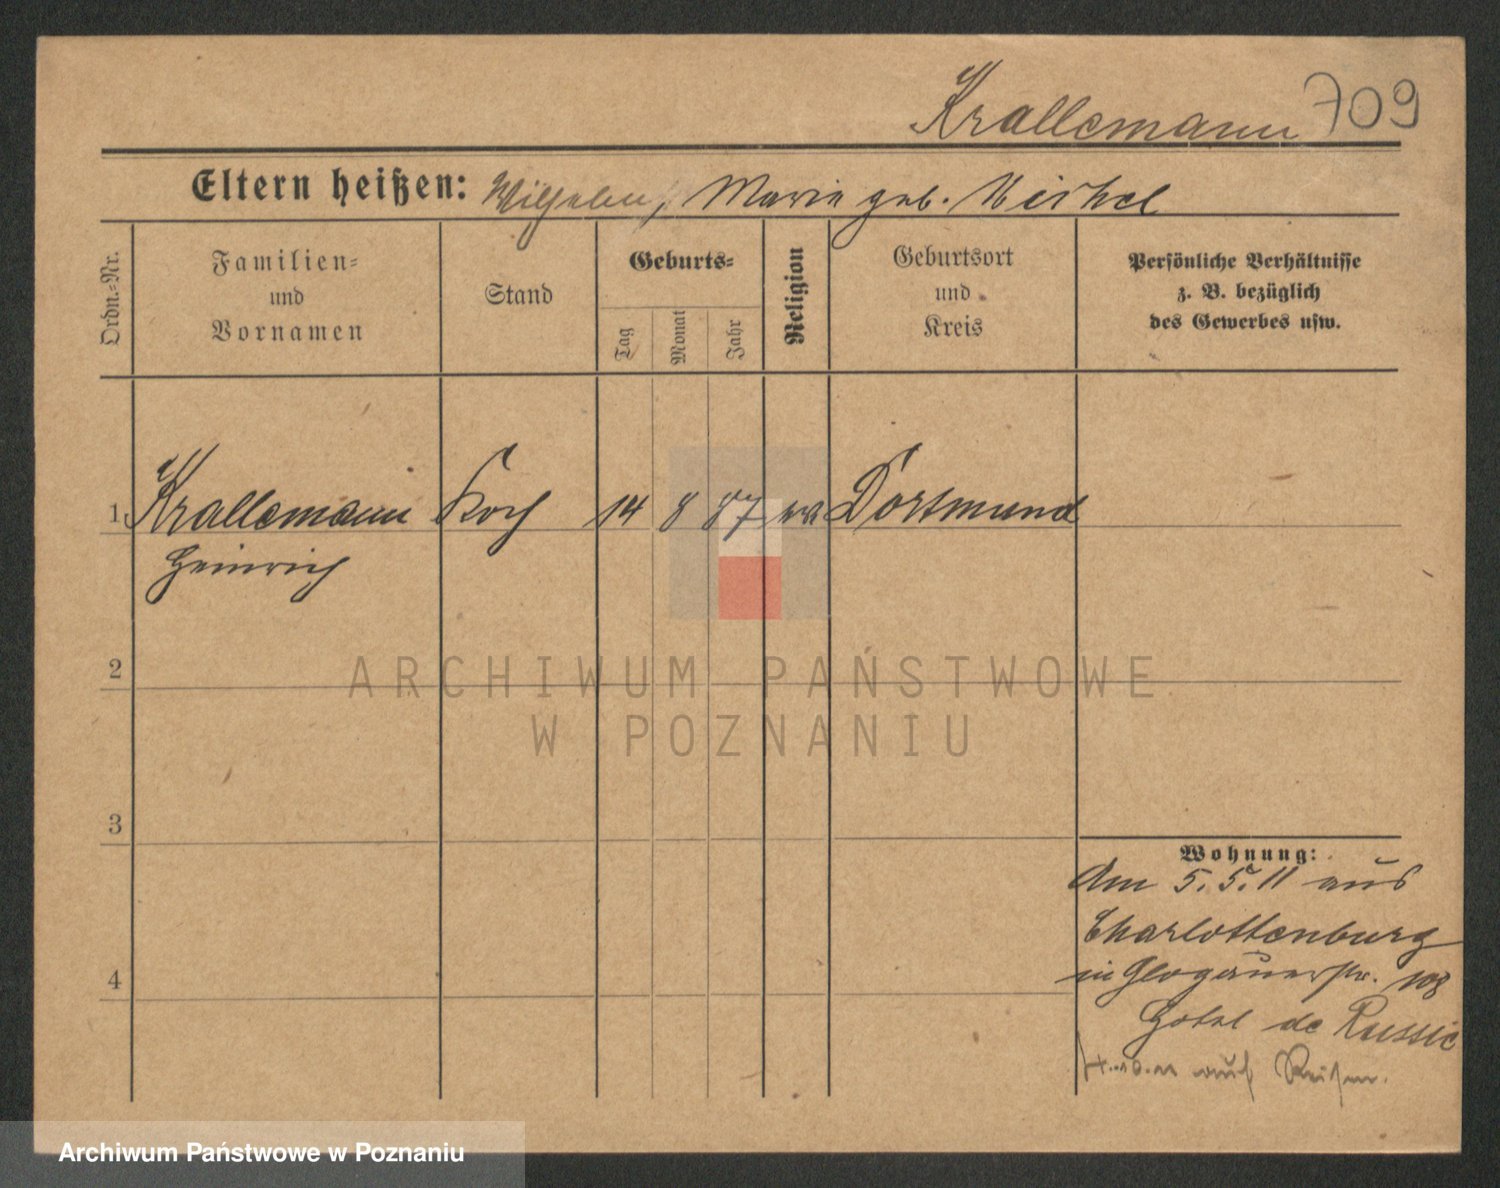 Krallemann 709
Eltern heißen: Wilhelm, Marie geb. Merkel
Ordn.-Nr.
Familien-
und
Vornamen
Stand
Geburts-
Tag
Monat
Jahr
Religion
Geburtsort
und
Kreis
Persönliche Verhältnisse
z. B. bezüglich
des Gewerbes usw.
1 Krallemann Koch 14 8 87 ev Dortmund
Heinrich
2
ARCHIWUM PAŃSTWOWE
W POZNANIU
3
Wohnung:
Am 5.5.11 aus
Charlottenburg
in Glogauerstr. 108
4
Hotel de Russie
10.11 auf Reisen.
Archiwum Państwowe w Poznaniu